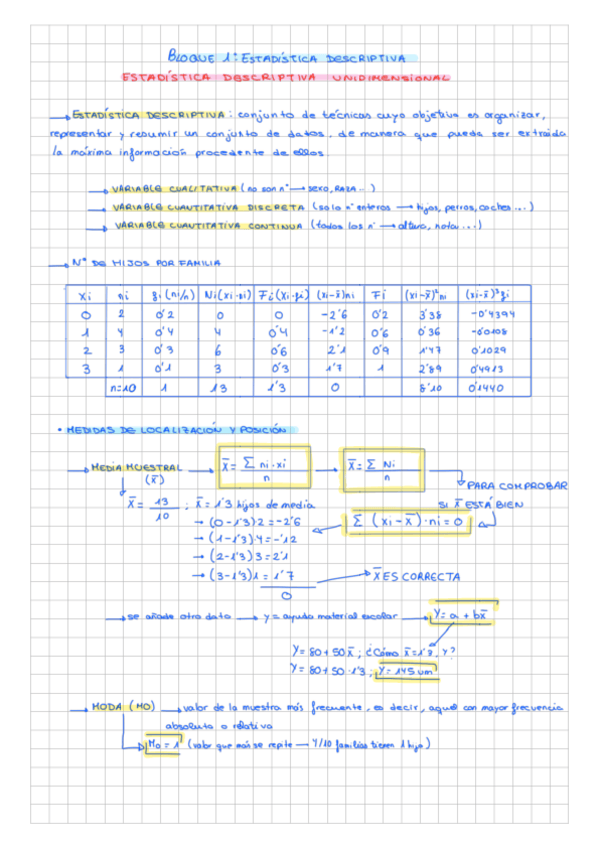 BLOQUE 1: ESTADÍSTICA DESCRIPTIVA
ESTADÍSTICA DESCRIPTIVA UNIDIMENSIONAL
→ ESTADÍSTICA DESCRIPTIVA: conjunto de técnicas cuyo objetivo es organizar,
representar y resumir un conjunto de datos, de manera que pueda ser extraida
la máxima información procedente de ellos.
→ VARIABLE CUALITATIVA (no son nº → sexo, RAZA...)
→ VARIABLE CUANTITATIVA DISCRETA (solo nº enteros → hijos, perros, coches...)
→ VARIABLE CUANTITATIVA CONTINUA (todos los nº → altura, nota...)
→ Nº DE HIJOS POR FAMILIA
xi ni fi (ni/n) Ni(xi·ni) Fi(xi·fi) (xi-x̄)ni Fi (xi-x̄)²ni (xi-x̄)³fi
0 2 0'2 0 0 -2'6 0'2 3'38 -0'4394
1 4 0'4 4 0'4 -1'2 0'6 0'36 -0'0108
2 3 0'3 6 0'6 2'1 0'9 1'47 0'1029
3 1 0'1 3 0'3 1'7 1 2'89 0'4913
n=10 1 13 1'3 0 8'10 0'1440
• MEDIDAS DE LOCALIZACIÓN Y POSICIÓN
→ MEDIA MUESTRAL → x̄ = Σ ni·xi / n → x̄ = Σ Ni / n
(x̄) PARA COMPROBAR
x̄ = 13/10 ; x̄ = 1'3 hijos de media SI x̄ ESTÁ BIEN
→ (0-1'3)2 = -2'6 Σ (xi-x̄)·ni = 0
→ (1-1'3)·4 = -1'2
→ (2-1'3)3 = 2'1
→ (3-1'3)1 = 1'7 → x̄ ES CORRECTA
0
→ se añade otro dato → y = ayuda material escolar → Y = a + bx̄
Y = 80 + 50x̄ ; ¿Cómo x̄ = 1'3, Y?
Y = 80 + 50·1'3 ; Y = 145 um
→ MODA (MO) → valor de la muestra más frecuente, es decir, aquel con mayor frecuencia
absoluta o relativa
Mo = 1 (valor que más se repite → 4/10 familias tienen 1 hijo)